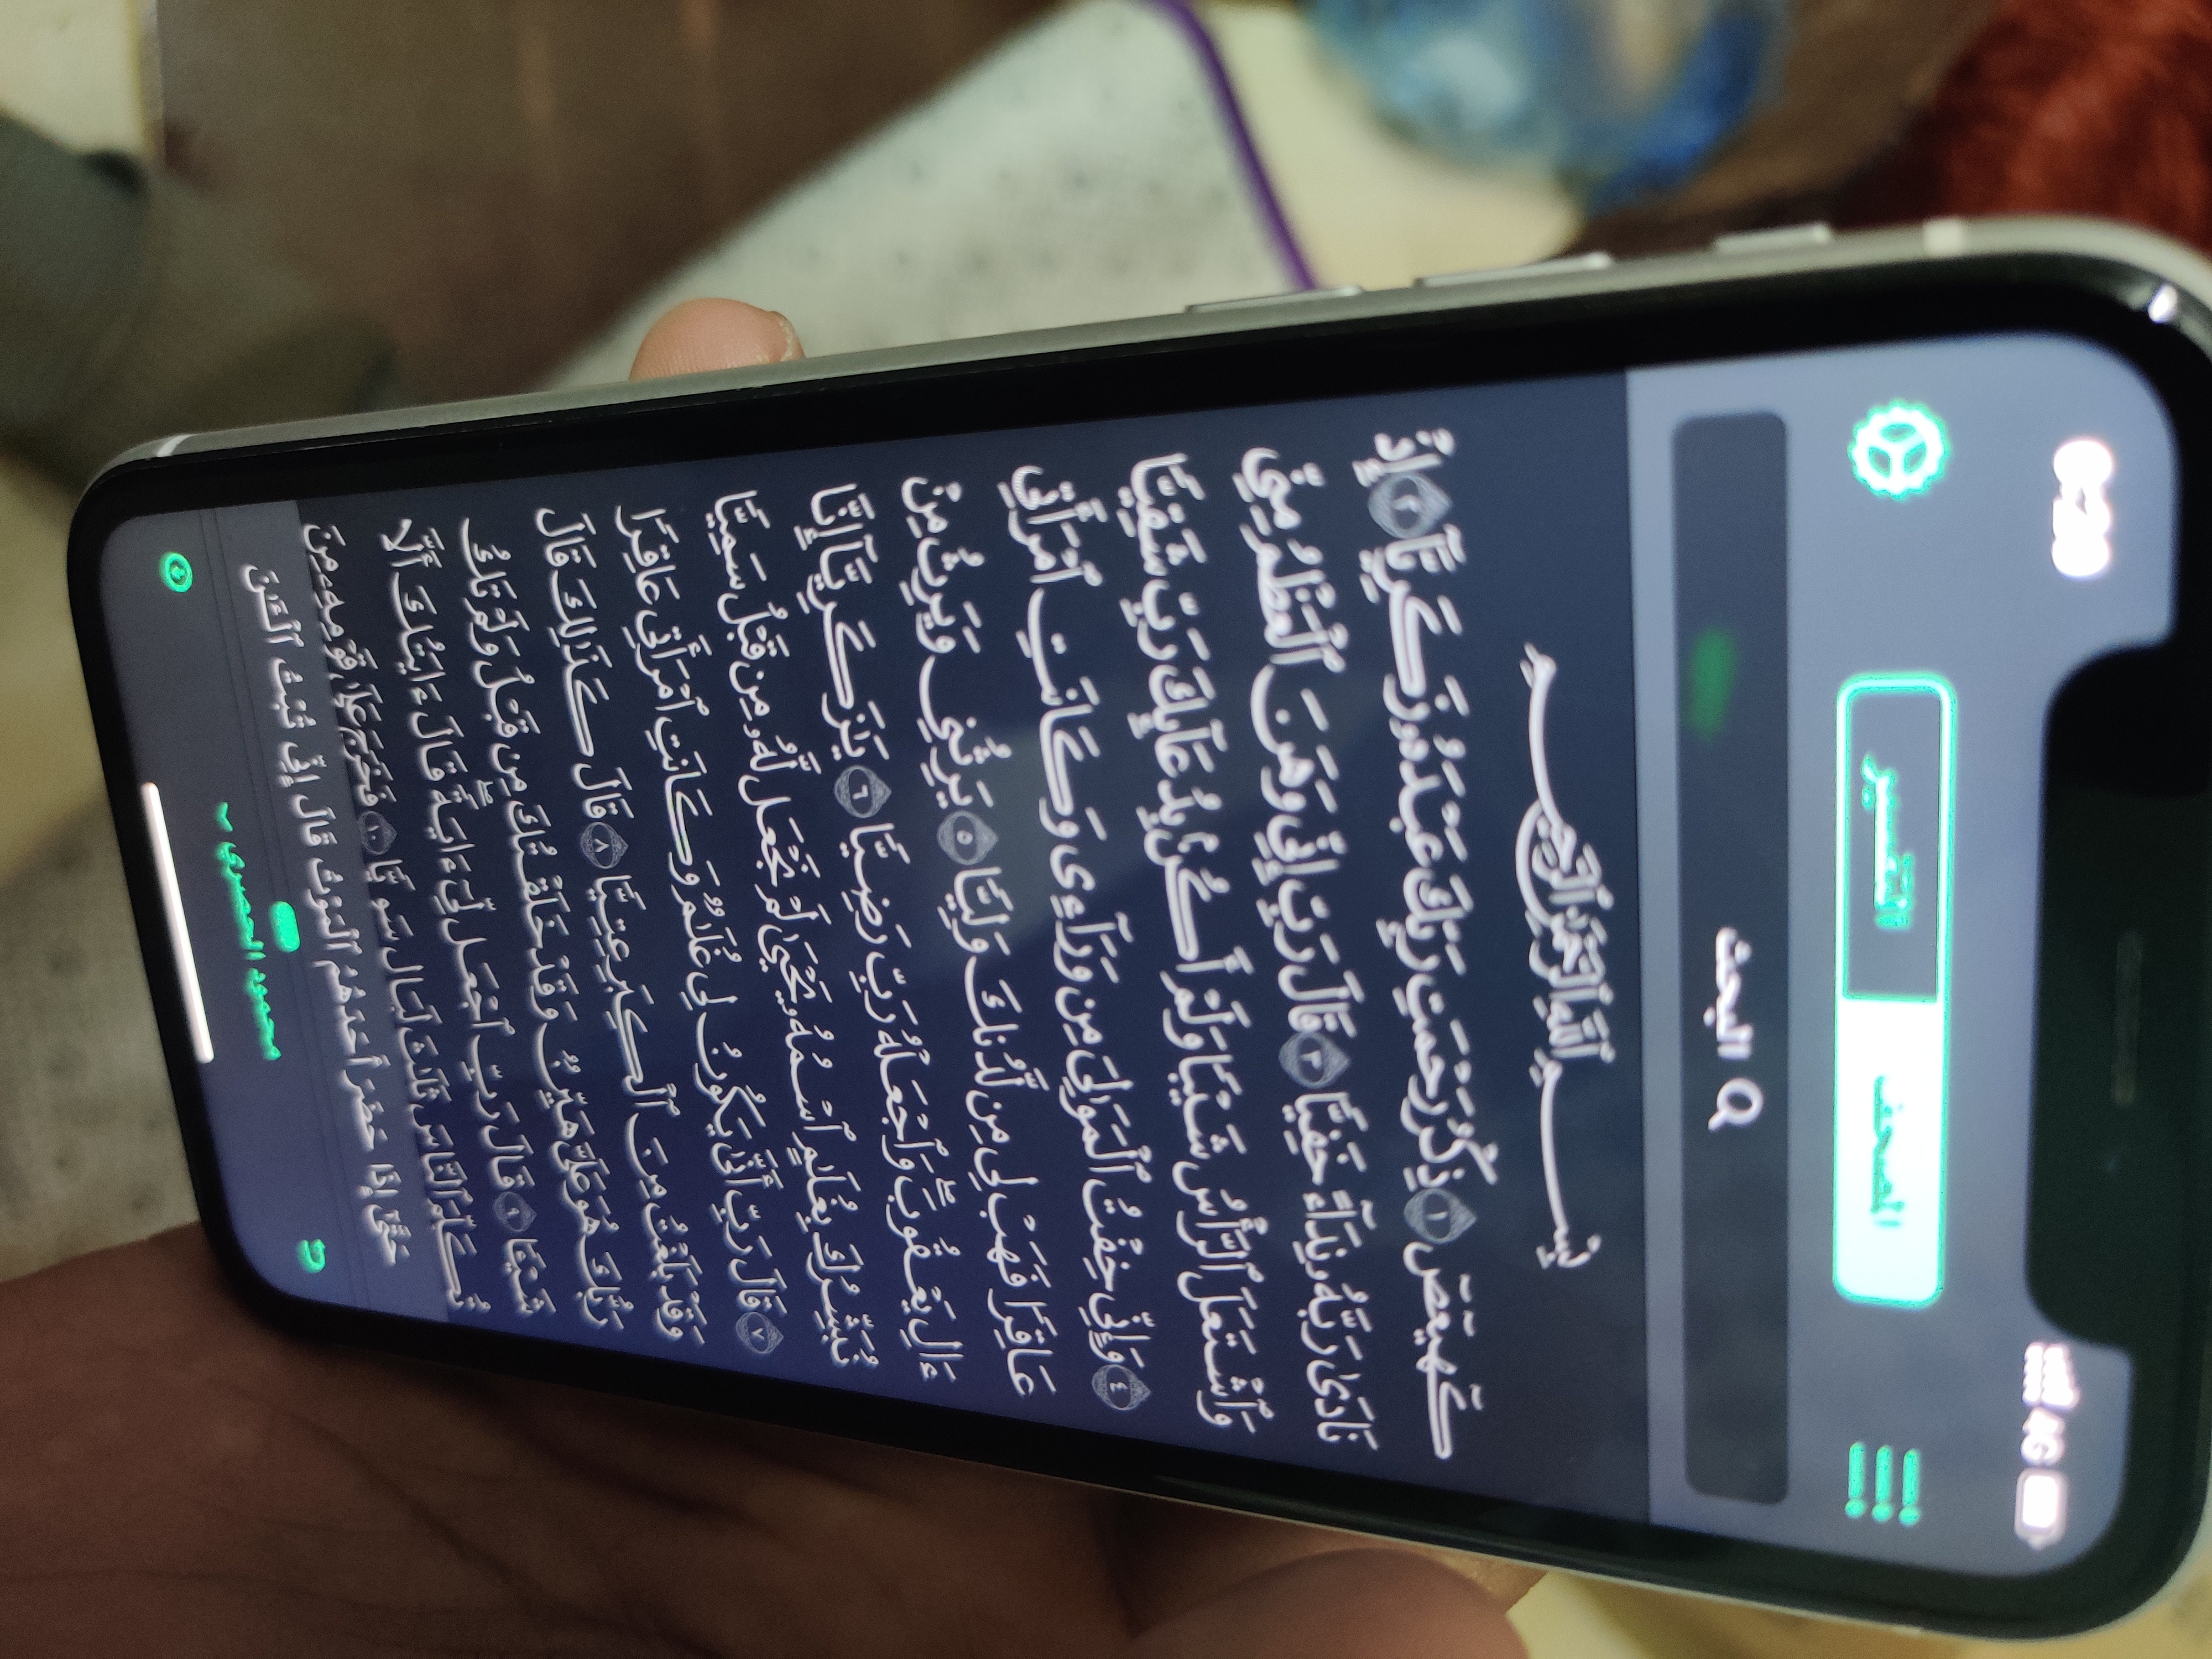 4G
المصحف التفسير
البحث
بِسْمِ ٱللَّهِ ٱلرَّحْمَٰنِ ٱلرَّحِيمِ
كٓهيعٓصٓ ١ ذِكْرُ رَحْمَتِ رَبِّكَ عَبْدَهُۥ زَكَرِيَّآ ٢ إِذْ
نَادَىٰ رَبَّهُۥ نِدَآءً خَفِيًّا ٣ قَالَ رَبِّ إِنِّى وَهَنَ ٱلْعَظْمُ مِنِّى
وَٱشْتَعَلَ ٱلرَّأْسُ شَيْبًا وَلَمْ أَكُنۢ بِدُعَآئِكَ رَبِّ شَقِيًّا
٤ وَإِنِّى خِفْتُ ٱلْمَوَٰلِىَ مِن وَرَآءِى وَكَانَتِ ٱمْرَأَتِى
عَاقِرًا فَهَبْ لِى مِن لَّدُنكَ وَلِيًّا ٥ يَرِثُنِى وَيَرِثُ مِنْ
ءَالِ يَعْقُوبَ وَٱجْعَلْهُ رَبِّ رَضِيًّا ٦ يَٰزَكَرِيَّآ إِنَّا
نُبَشِّرُكَ بِغُلَٰمٍ ٱسْمُهُۥ يَحْيَىٰ لَمْ نَجْعَل لَّهُۥ مِن قَبْلُ سَمِيًّا
٧ قَالَ رَبِّ أَنَّىٰ يَكُونُ لِى غُلَٰمٌ وَكَانَتِ ٱمْرَأَتِى عَاقِرًا
وَقَدْ بَلَغْتُ مِنَ ٱلْكِبَرِ عِتِيًّا ٨ قَالَ كَذَٰلِكَ قَالَ
رَبُّكَ هُوَ عَلَىَّ هَيِّنٌ وَقَدْ خَلَقْتُكَ مِن قَبْلُ وَلَمْ تَكُ
شَيْـًٔا ٩ قَالَ رَبِّ ٱجْعَل لِّىٓ ءَايَةً قَالَ ءَايَتُكَ أَلَّا
تُكَلِّمَ ٱلنَّاسَ ثَلَٰثَ لَيَالٍ سَوِيًّا ١٠ فَخَرَجَ عَلَىٰ قَوْمِهِۦ مِنَ
حَتَّىٰٓ إِذَا حَضَرَ أَحَدَهُمُ ٱلْمَوْتُ قَالَ إِنِّى تُبْتُ ٱلْـَٰٔنَ
محمود الحصري